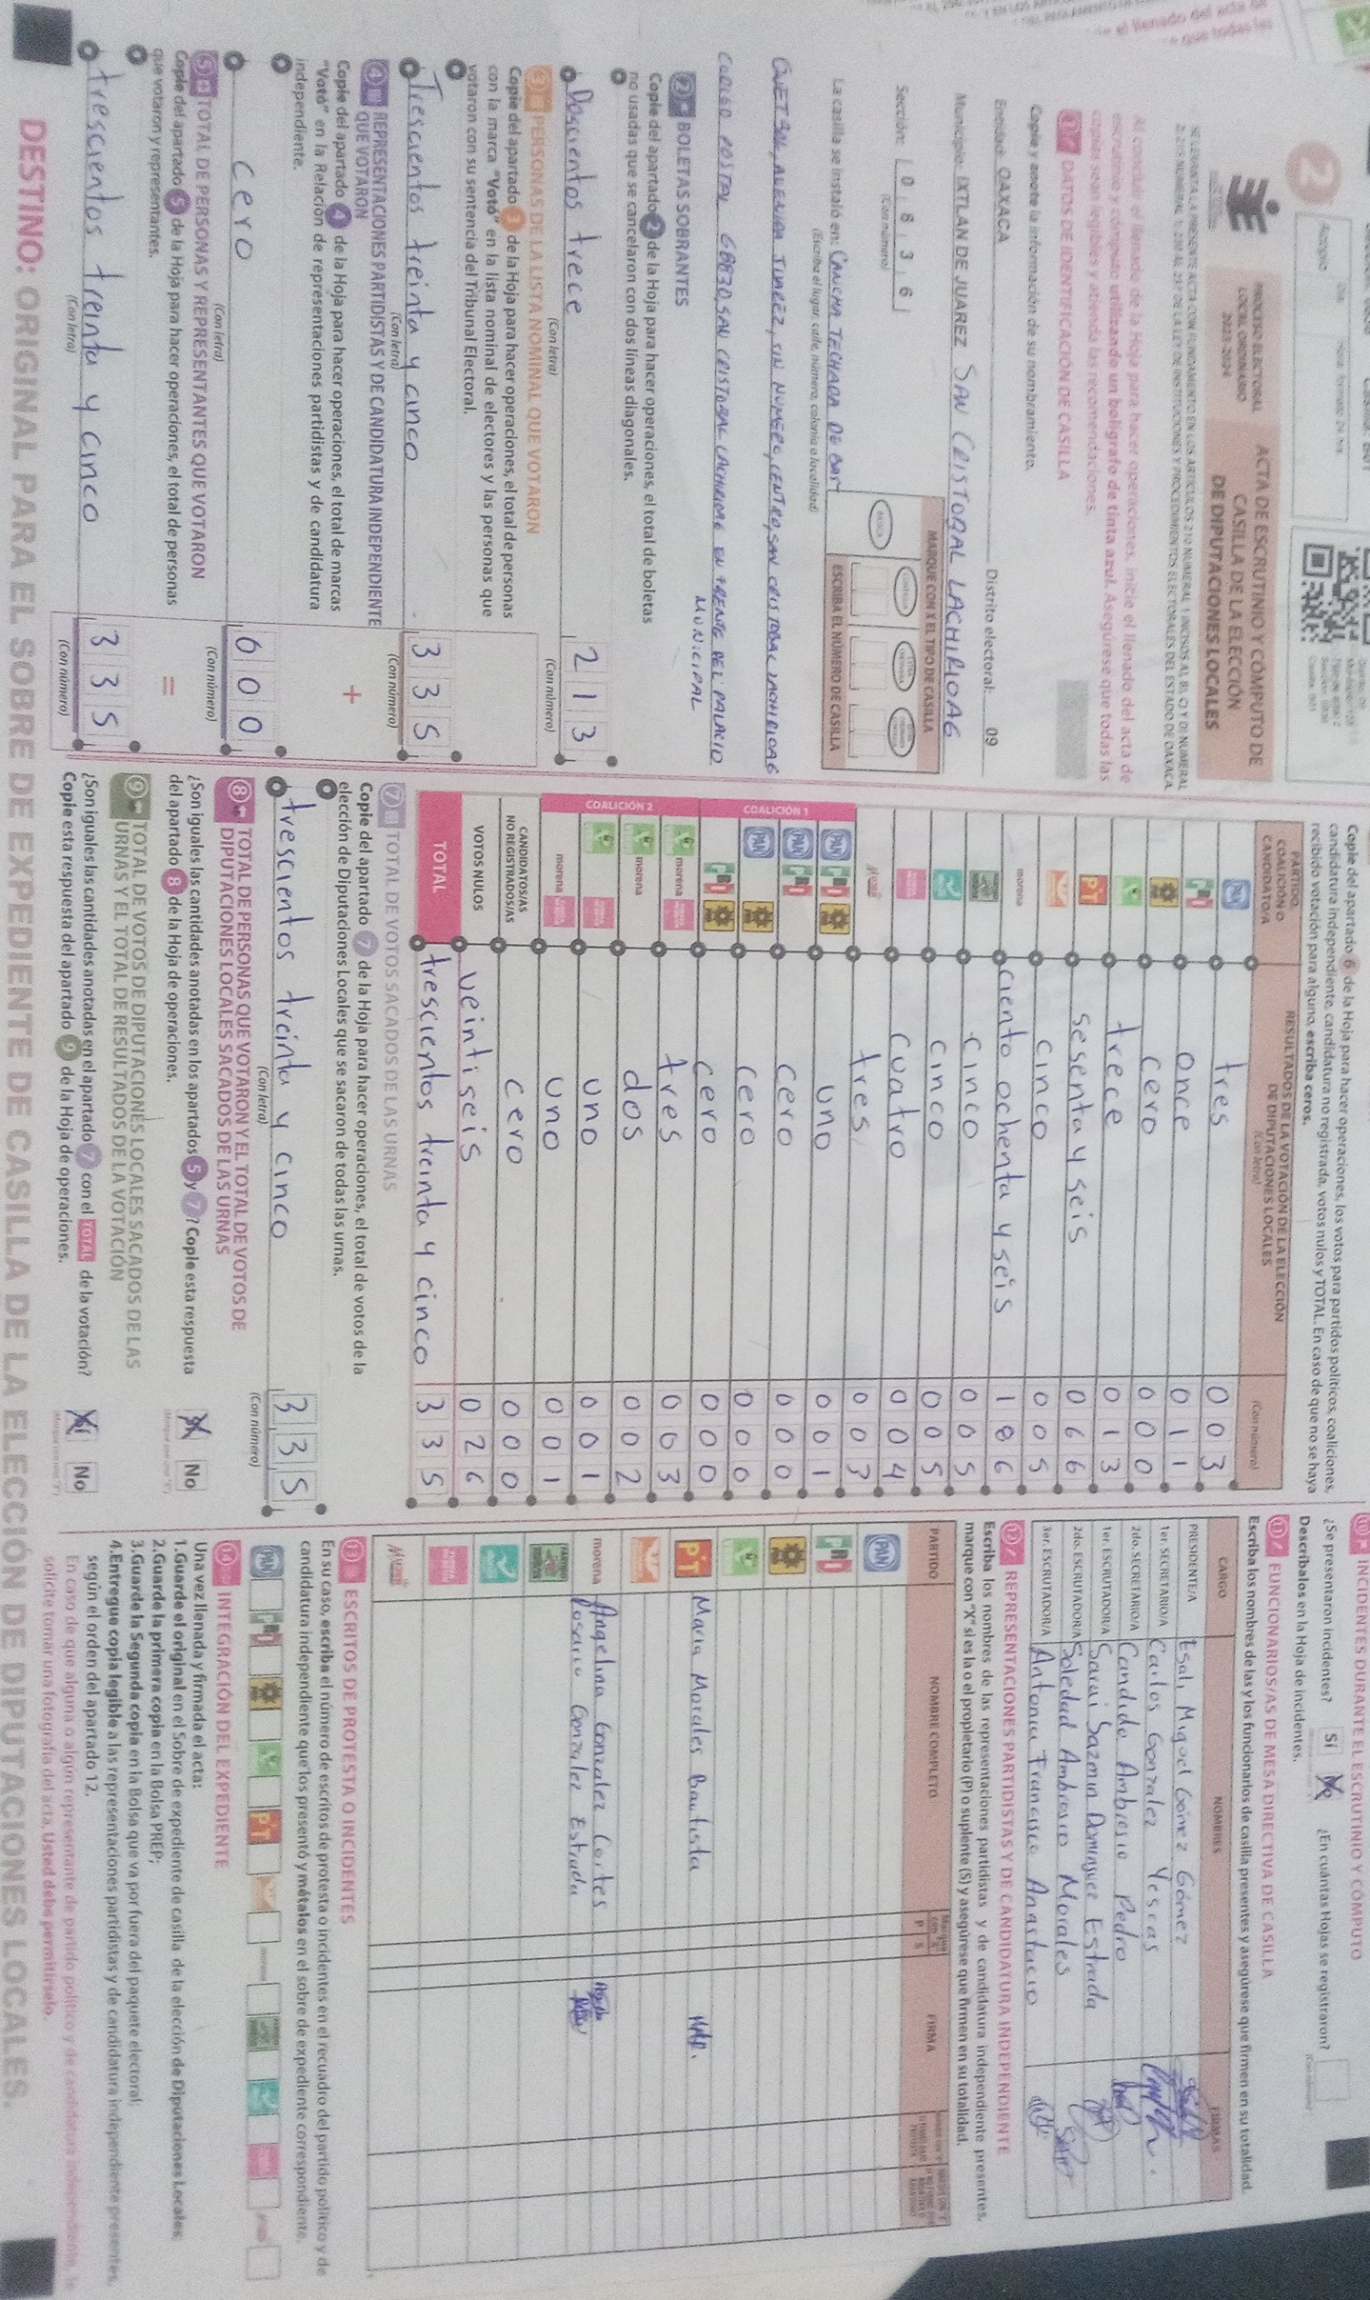 2
Acopio
PROCESO ELECTORAL
LOCAL ORDINARIO
2023-2024
ACTA DE ESCRUTINIO Y CÓMPUTO DE
CASILLA DE LA ELECCIÓN
DE DIPUTACIONES LOCALES
Al concluir el llenado de la Hoja para hacer operaciones, inicie el llenado del acta de
escrutinio y cómputo utilizando un bolígrafo de tinta azul. Asegúrese que todas las
copias sean legibles y atienda las recomendaciones.
1 DATOS DE IDENTIFICACIÓN DE CASILLA
Copie y anote la información de su nombramiento.
Entidad: OAXACA Distrito electoral: 09
Municipio: IXTLAN DE JUAREZ SAN CRISTOBAL LACHIRIOAG
Sección: 0 6 3 6
(Con número)
MARQUE CON X EL TIPO DE CASILLA
ESCRIBA EL NÚMERO DE CASILLA
La casilla se instaló en: CANCHA TECHADA DE
(Escriba el lugar, calle, número, colonia o localidad)
AVENIDA JUAREZ, SIN NUMERO, CENTRO, SAN CRISTOBAL LACHIRIOAG
CODIGO POSTAL 68830, SAN CRISTOBAL LACHIRIOAG EN FRENTE DEL PALACIO
MUNICIPAL
2 BOLETAS SOBRANTES
Copie del apartado 2 de la Hoja para hacer operaciones, el total de boletas
no usadas que se cancelaron con dos líneas diagonales.
Doscientos trece 2 1 3
(Con letra) (Con número)
3 PERSONAS DE LA LISTA NOMINAL QUE VOTARON
Copie del apartado 3 de la Hoja para hacer operaciones, el total de personas
con la marca "Votó" en la lista nominal de electores y las personas que
votaron con su sentencia del Tribunal Electoral.
Trescientos treinta y cinco 3 3 5
(Con letra) (Con número)
4 REPRESENTACIONES PARTIDISTAS Y DE CANDIDATURA INDEPENDIENTE
QUE VOTARON
+
Copie del apartado 4 de la Hoja para hacer operaciones, el total de marcas
"Votó" en la Relación de representaciones partidistas y de candidatura
independiente.
cero 0 0 0
(Con letra) (Con número)
5 TOTAL DE PERSONAS Y REPRESENTANTES QUE VOTARON
=
Copie del apartado 5 de la Hoja para hacer operaciones, el total de personas
que votaron y representantes.
trescientos treinta y cinco 3 3 5
(Con letra) (Con número)
Copie del apartado 6 de la Hoja para hacer operaciones, los votos para partidos políticos, coaliciones,
candidatura independiente, candidatura no registrada, votos nulos y TOTAL. En caso de que no se haya
recibido votación para alguno, escriba ceros.
PARTIDO, COALICIÓN O CANDIDATO/A
RESULTADOS DE LA VOTACIÓN DE LA ELECCIÓN
DE DIPUTACIONES LOCALES
(Con letra) (Con número)
PAN tres 0 0 3
PRI once 0 1 1
cero 0 0 0
trece 0 1 3
PT sesenta y seis 0 6 6
cinco 0 0 5
morena ciento ochenta y seis 1 8 6
cinco 0 0 5
cinco 0 0 5
cuatro 0 0 4
tres 0 0 3
COALICIÓN 1
PAN PRI uno 0 0 1
PAN PRI cero 0 0 0
PAN cero 0 0 0
PRI cero 0 0 0
COALICIÓN 2
morena tres 0 0 3
morena dos 0 0 2
uno 0 0 1
morena uno 0 0 1
CANDIDATOS/AS
NO REGISTRADOS/AS cero 0 0 0
VOTOS NULOS veintiseis 0 2 6
TOTAL trescientos treinta y cinco 3 3 5
7 TOTAL DE VOTOS SACADOS DE LAS URNAS
Copie del apartado 7 de la Hoja para hacer operaciones, el total de votos de la
elección de Diputaciones Locales que se sacaron de todas las urnas.
trescientos treinta y cinco 3 3 5
(Con letra) (Con número)
8 TOTAL DE PERSONAS QUE VOTARON Y EL TOTAL DE VOTOS DE
DIPUTACIONES LOCALES SACADOS DE LAS URNAS
¿Son iguales las cantidades anotadas en los apartados 5 y 7? Copie esta respuesta
del apartado 8 de la Hoja de operaciones.
Sí No
9 TOTAL DE VOTOS DE DIPUTACIONES LOCALES SACADOS DE LAS
URNAS Y EL TOTAL DE RESULTADOS DE LA VOTACIÓN
¿Son iguales las cantidades anotadas en el apartado 7 con el TOTAL de la votación?
Copie esta respuesta del apartado 9 de la Hoja de operaciones.
Sí No
10 INCIDENTES DURANTE EL ESCRUTINIO Y CÓMPUTO
¿Se presentaron incidentes? Sí No ¿En cuántas Hojas se registraron?
Descríbalos en la Hoja de incidentes.
11 FUNCIONARIOS/AS DE MESA DIRECTIVA DE CASILLA
Escriba los nombres de las y los funcionarios de casilla presentes y asegúrese que firmen en su totalidad.
CARGO NOMBRES FIRMAS
PRESIDENTE/A Esali Miguel Gómez Gómez
1er. SECRETARIO/A Carlos Gonzalez Yescas
2do. SECRETARIO/A Candido Ambrosio Pedro
1er. ESCRUTADOR/A Sarai Sazmin Dominguez Estrada
2do. ESCRUTADOR/A Soledad Ambrosio Morales
3er. ESCRUTADOR/A Antonia Francisco Anastacio
12 REPRESENTACIONES PARTIDISTAS Y DE CANDIDATURA INDEPENDIENTE
Escriba los nombres de las representaciones partidistas y de candidatura independiente presentes,
marque con "X" si es la o el propietario (P) o suplente (S) y asegúrese que firmen en su totalidad.
PARTIDO NOMBRE COMPLETO P S FIRMA
PAN
PRI
PT Maria Morales Bautista
morena Angelina Gonzalez Cortes
Rosario Gonzalez Estrada
13 ESCRITOS DE PROTESTA O INCIDENTES
En su caso, escriba el número de escritos de protesta o incidentes en el recuadro del partido político y de
candidatura independiente que los presentó y métalos en el sobre de expediente correspondiente.
PAN PRI PT morena
14 INTEGRACIÓN DEL EXPEDIENTE
Una vez llenada y firmada el acta:
1. Guarde el original en el Sobre de expediente de casilla de la elección de Diputaciones Locales;
2. Guarde la primera copia en la Bolsa PREP;
3. Guarde la Segunda copia en la Bolsa que va por fuera del paquete electoral;
4. Entregue copia legible a las representaciones partidistas y de candidatura independiente presentes,
según el orden del apartado 12.
En caso de que alguna o algún representante de partido político y de candidatura independiente, le
solicite tomar una fotografía del acta. Usted debe permitírselo.
DESTINO: ORIGINAL PARA EL SOBRE DE EXPEDIENTE DE CASILLA DE LA ELECCIÓN DE DIPUTACIONES LOCALES.